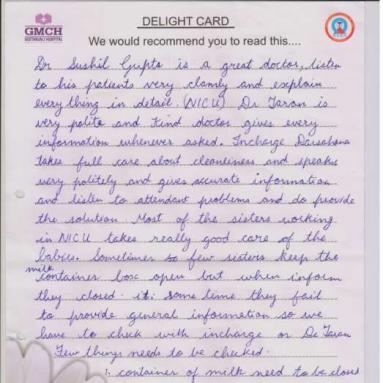 GMCH
GEETANJALI HOSPITAL
DELIGHT CARD
We would recommend you to read this....
Dr Sushil Gupta is a great doctor, listen
to his patients very clamly and explain
everything in detail. (NICU) Dr Taran is
very polite and kind doctor gives every
information whenever asked. Incharge Darsahana
takes full care about cleanliness and speaks
very politely and gives accurate information
and listen to attendant problems and do provide
the solution. Most of the sisters working
in NICU takes really good care of the
babies. Sometimes so few sisters keep the
milk
container box open but when inform
they closed it. some time they fail
to provide general information so we
have to check with incharge or Dr Taran
Few things needs to be checked.
1. container of milk need to be closed